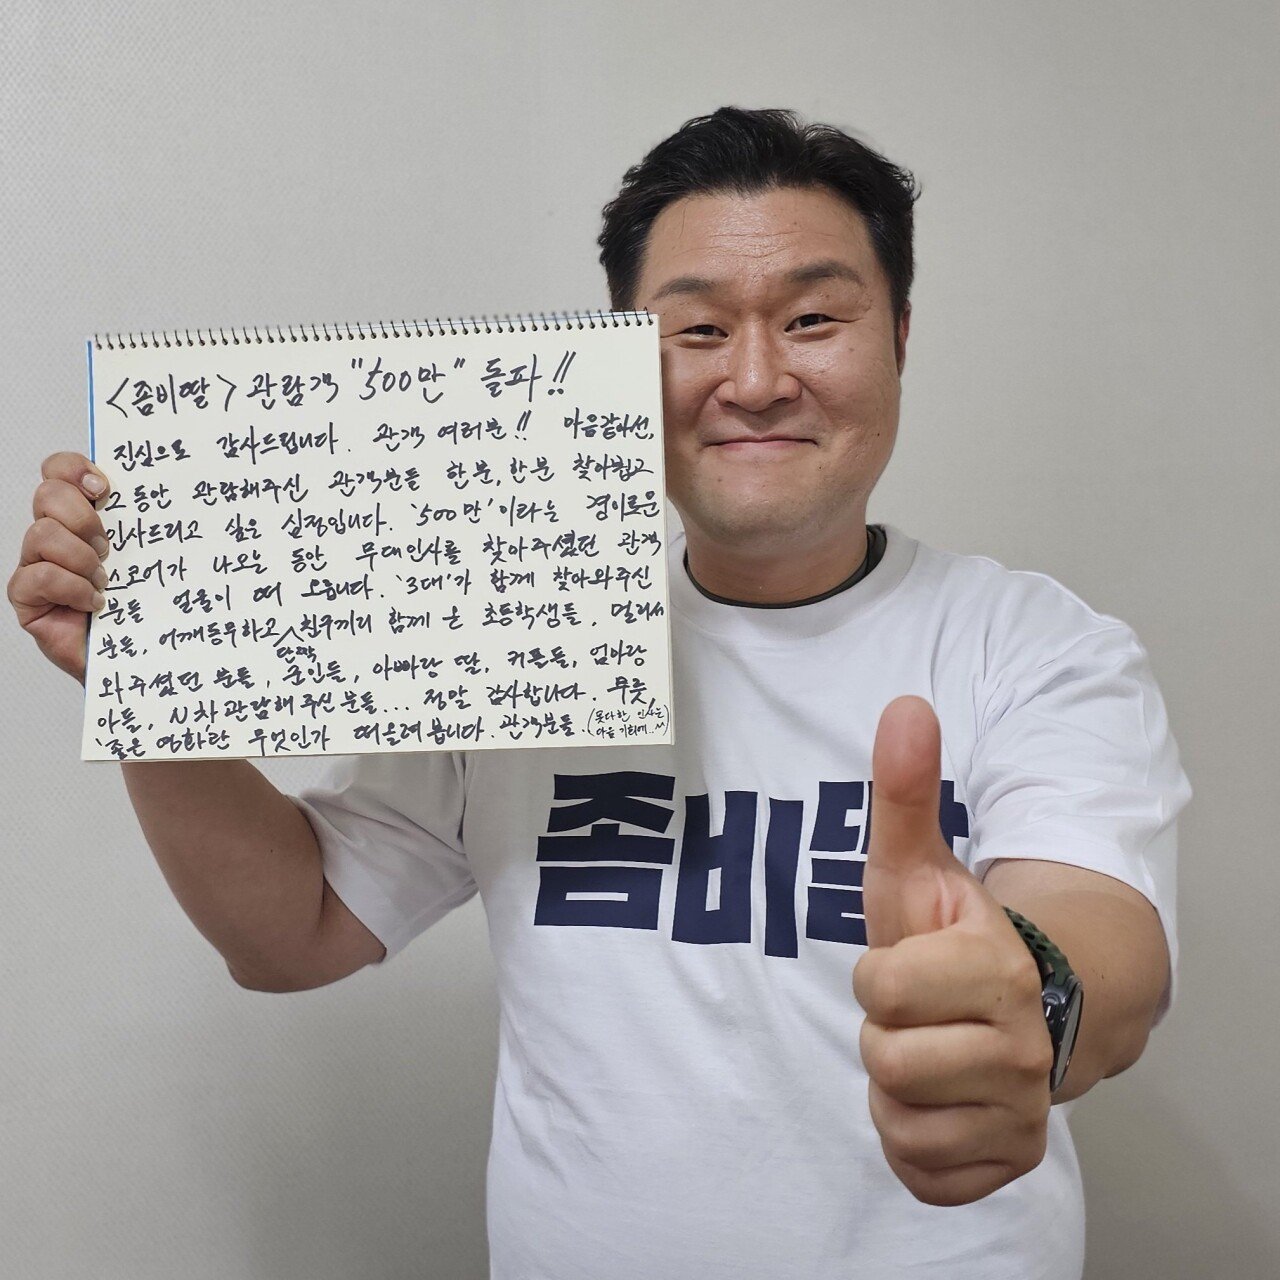 <좀비딸> 관람객 "500만" 돌파!!
진심으로 감사드립니다. 관객 여러분!! 마음같아선,
그동안 관람해주신 관객분들 한분, 한분 찾아뵙고
인사드리고 싶은 심정입니다. '500만'이라는 경이로운
스코어가 나오는 동안 무대인사를 찾아주셨던 관객
분들 얼굴이 떠 오릅니다. '3대'가 함께 찾아와주신
분들, 어깨동무하고 단짝 친구끼리 함께 온 초등학생들, 멀리서
와주셨던 분들, 군인들, 아빠랑 딸, 커플들, 엄마랑
아들, N차 관람해 주신 분들... 정말 감사합니다. 무릇,
'좋은 영화'란 무엇인가 떠올려 봅니다. 관객분들. (못다한 인사는
다음 기회에..^^)
좀비딸